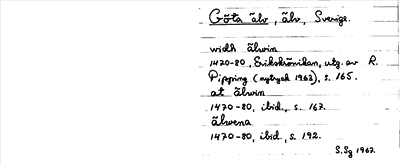 Göta älv, älv, Sverige.
widh älwin
1470-80, Erikskrönikan, utg. av R.
Pipping (nytryck 1963), s. 165.
at älwin
1470-80, ibid., s. 167.
älwena
1470-80, ibid., s. 192.
S.Sg 1967.